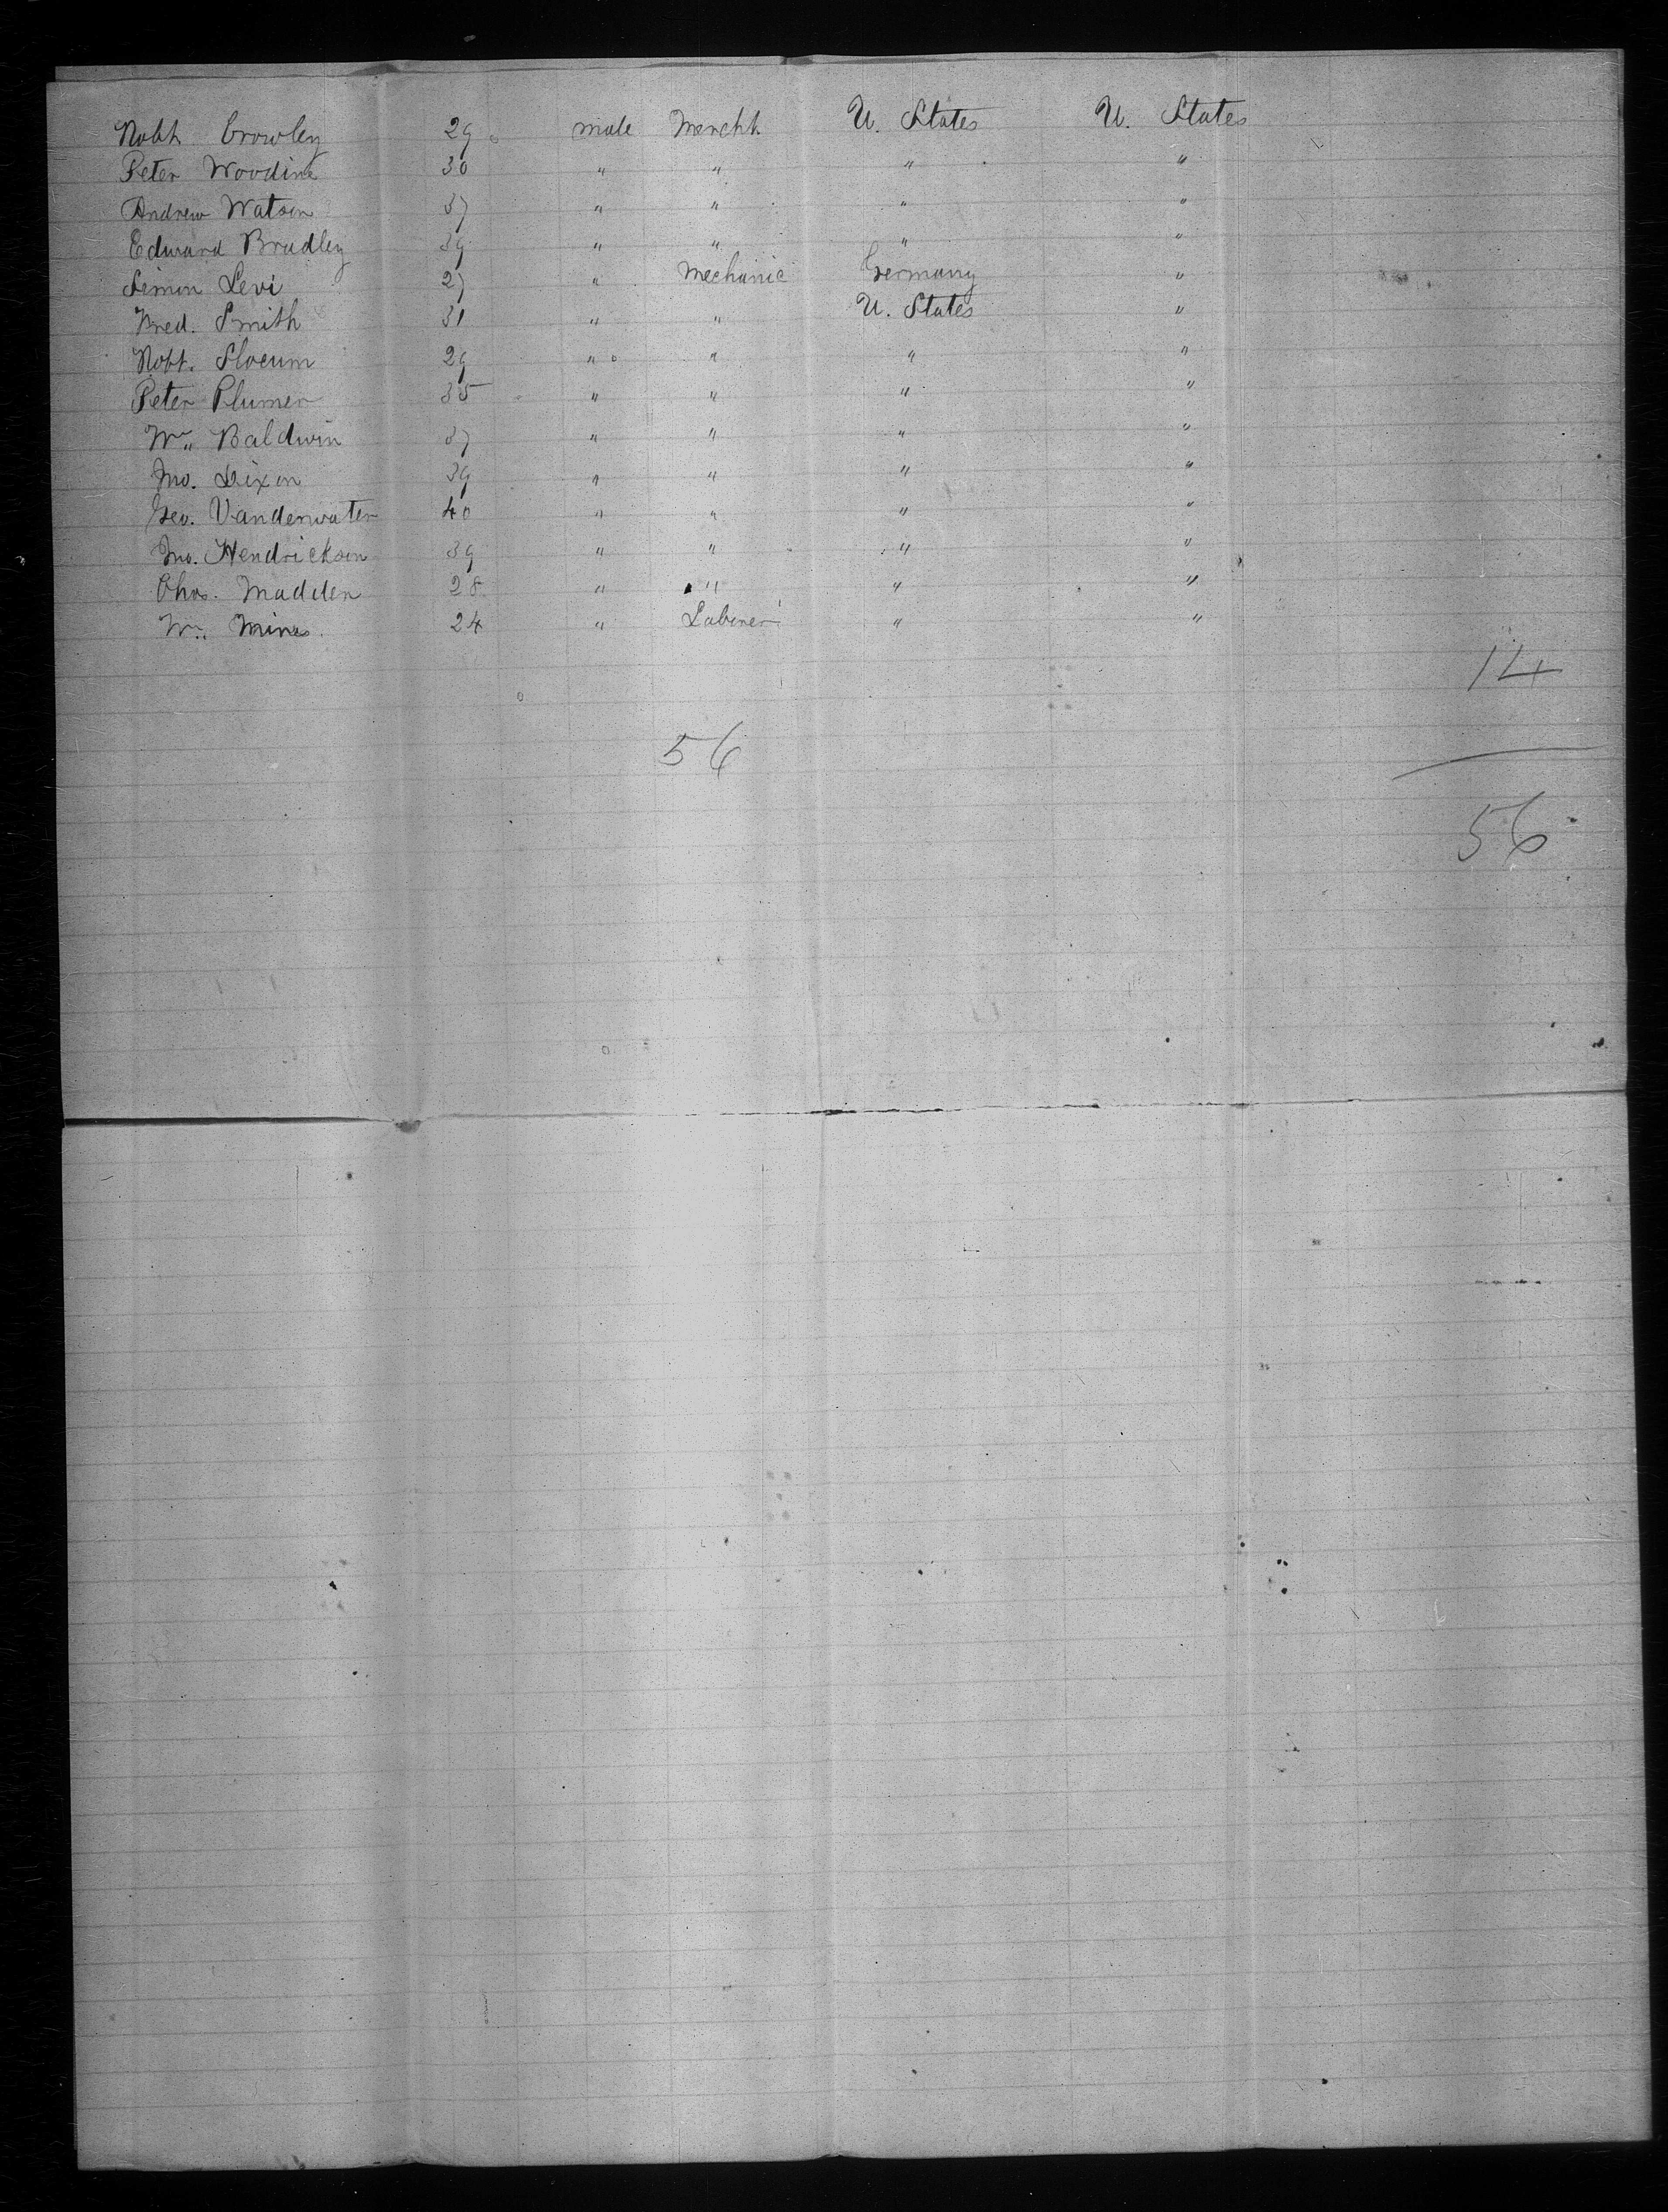 Robt Crowley 29 male Mercht U. States U. States
Peter Woodine 30 " " " "
Andrew Watson 37 " " " "
Edward Bradley 39 " " " "
Simon Levi 27 " Mechanic Germany "
Fred. Smith 31 " " U. States "
Robt. Slocum 29 " " " "
Peter Plumer 35 " " " "
Wm Baldwin 37 " " " "
Jno. Dixon 39 " " " "
Geo. Vanderwater 40 " " " "
Jno. Hendrickson 39 " " " "
Chas. Madden 28 " " " "
Wm 24 " Laborer " "
14
56
56